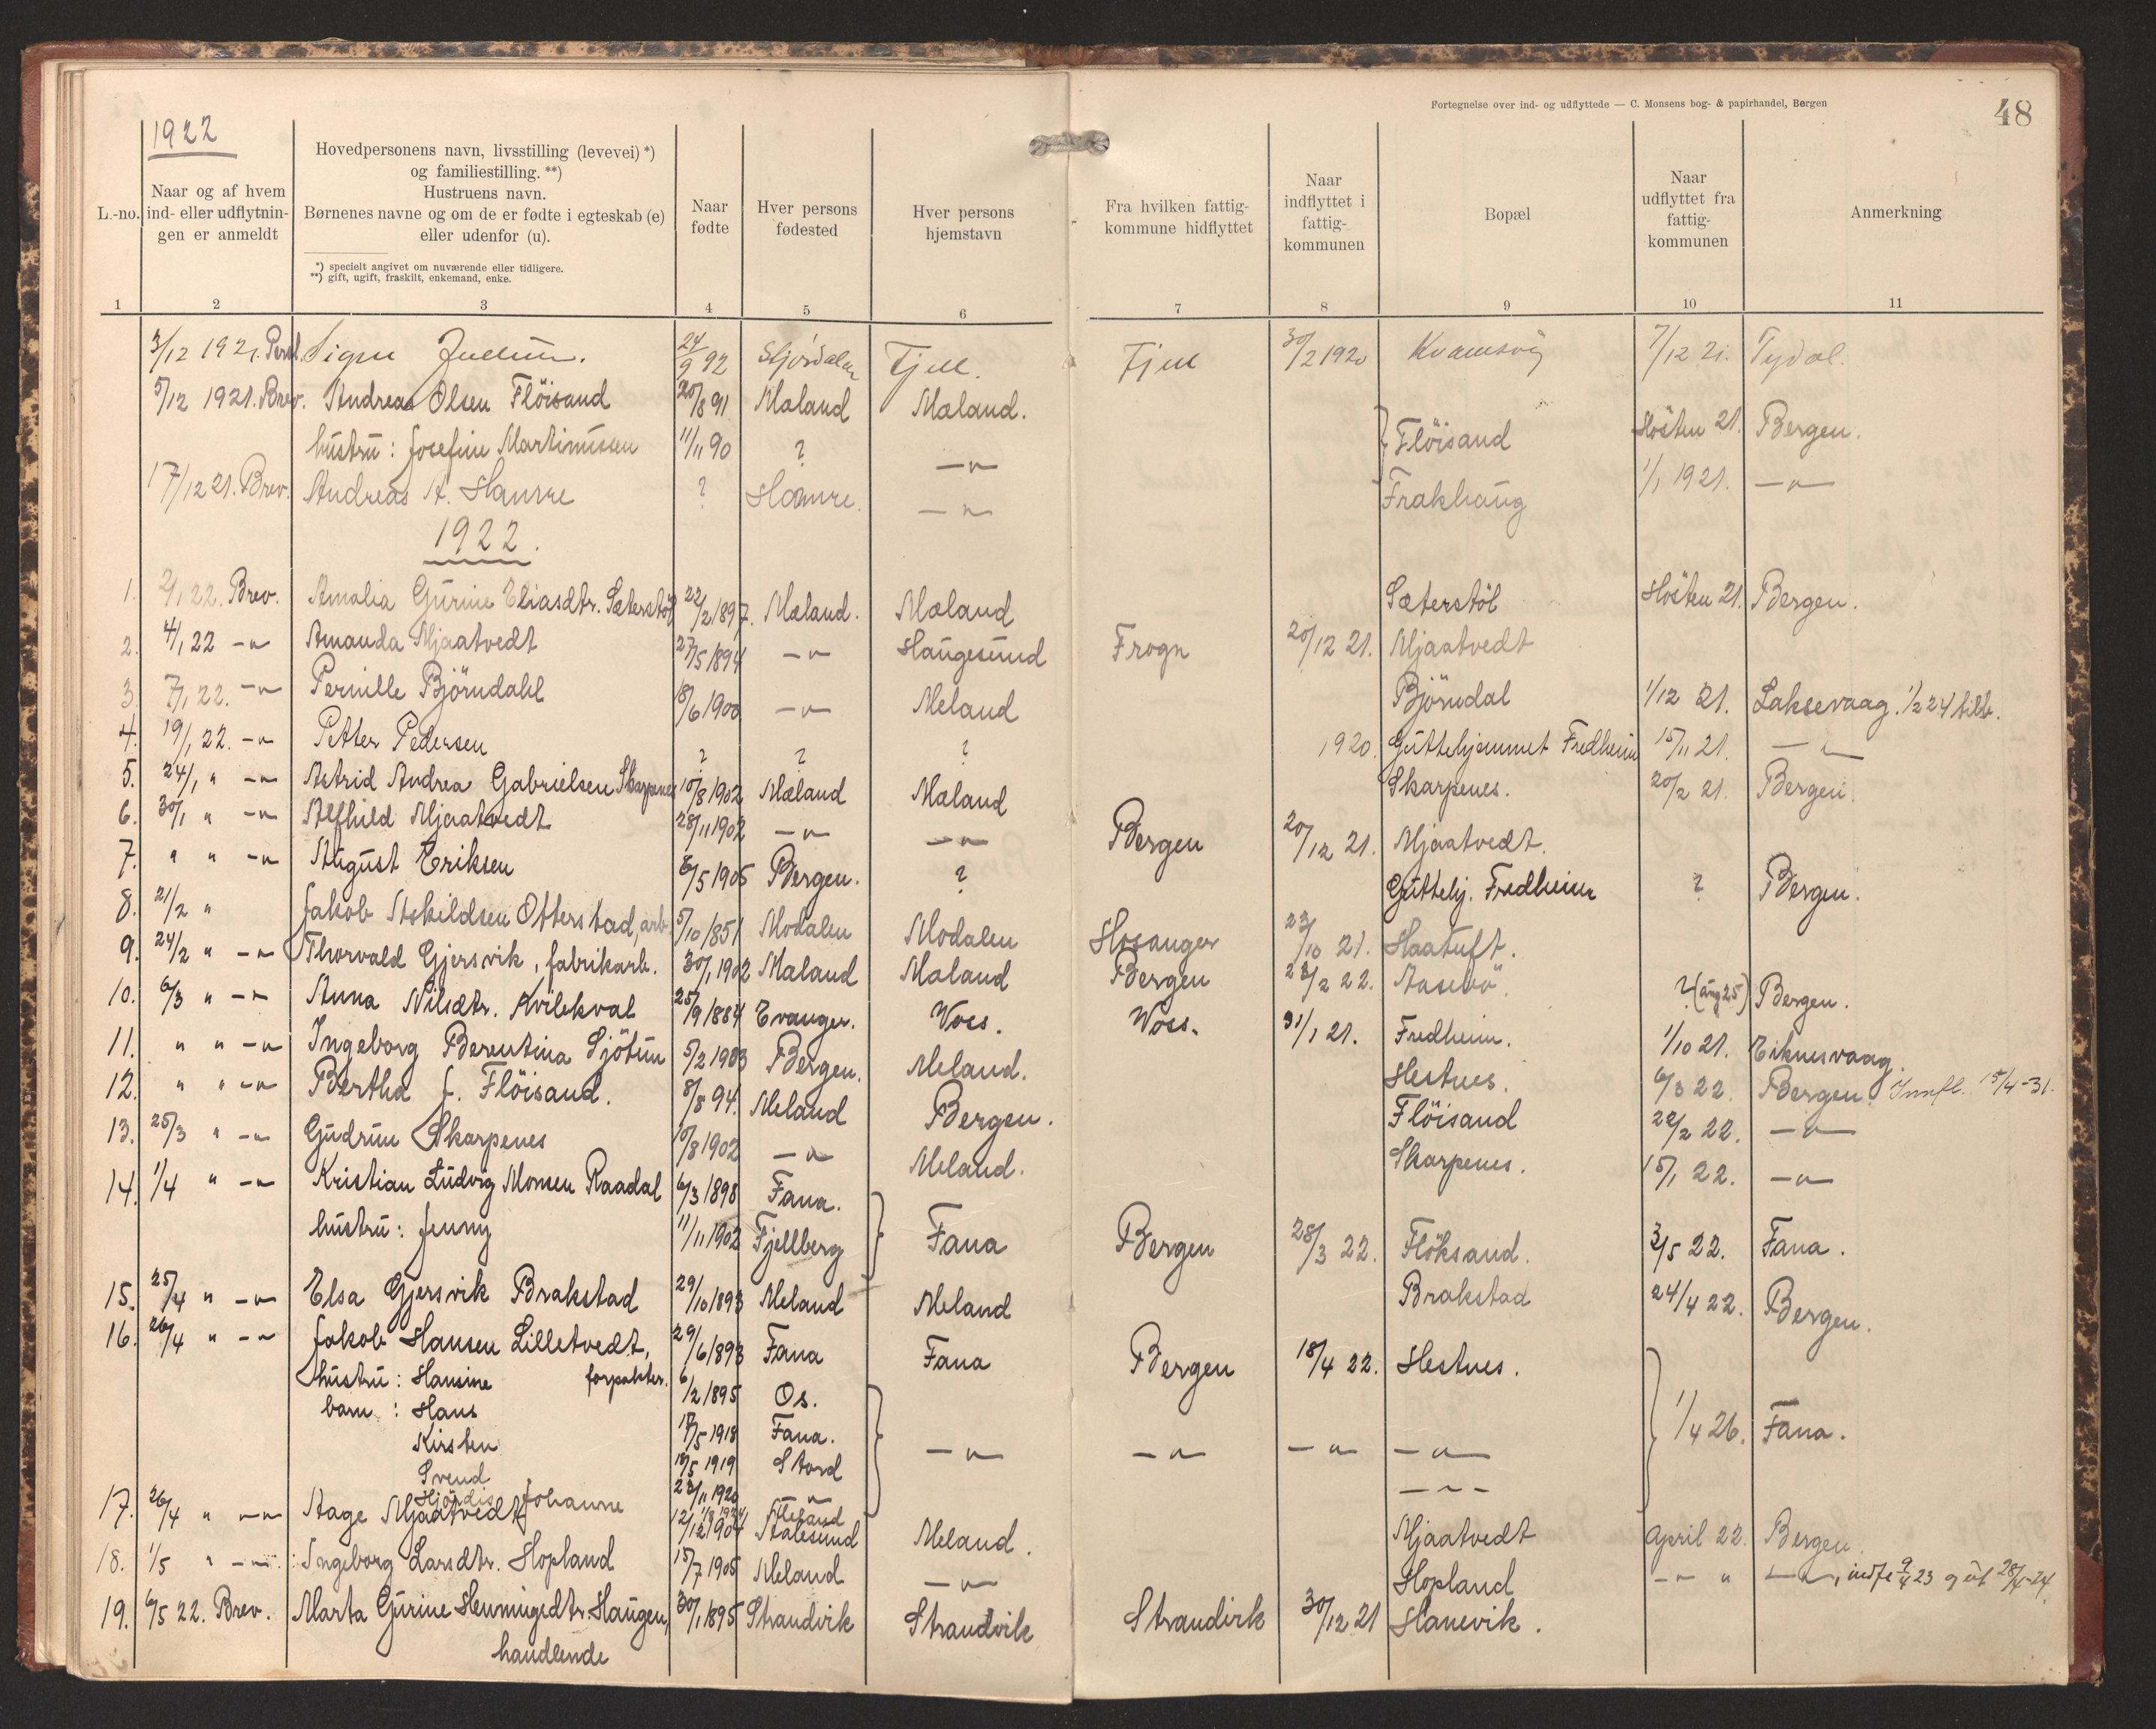 Fortegnelse over ind- og udflyttede — C. Monsens bog- & papirhandel, Bergen
48
1922
L.-no.
Naar og af hvem ind- eller udflytnin-gen er anmeldt
Hovedpersonens navn, livsstilling (levevei) *) og familiestilling. **)
Hustruens navn.
Børnenes navne og om de er fødte i egteskab (e) eller udenfor (u).
*) specielt angivet om nuværende eller tidligere.
**) gift, ugift, fraskilt, enkemand, enke.
Naar fødte
Hver persons fødested
Hver persons hjemstavn
Fra hvilken fattig-kommune hidflyttet
Naar indflyttet i fattig-kommunen
Bopæl
Naar udflyttet fra fattig-kommunen
Anmerkning
1 2 3 4 5 6 7 8 9 10 11
3/12 1921. Signe 24/9 92 Stjørdalen Fjell. Fjell 30/2 1920 Kvamsvåg 7/12 21. Tydal.
5/12 1921. Brev. Andreas Olsen Flöisand 20/8 91 Mæland Mæland. Flöisand Hösten 21. Bergen.
hustru: Josefine Martinussen 11/11 90 ? —"—
17/12 21. Brev. Andreas A. Hamre ? Hamre. —"— Frakhaug 1/1 1921. —"—
1922.
1. 2/1 22. Brev. Amalia Gurine Eliasdtr. Sæterstöl 22/2 1897. Mæland. Mæland Sæterstöl Hösten 21. Bergen.
2. 4/1 22 —"— Amanda Mjaatvedt 27/5 1894 —"— Haugesund Frogn 20/12 21. Mjaatvedt
3. 7/1 22. —"— Pernille Björndahl 18/6 1900 —"— Meland Björndal 1/12 21. Laksevaag. 1/2 24 tilb.
4. 19/1 22. —"— Petter Pedersen ? ? ? 1920. Guttehjemmet Fredheim 15/11 21. —"—
5. 24/1 " —"— Astrid Andrea Gabrielsen Skarpenes 10/8 1902 Mæland Mæland Skarpenes. 20/2 21. Bergen.
6. 30/1 " —"— Alfhild Mjaatvedt 28/11 1902 —"— —"— Bergen 20/12 21. Mjaatvedt.
7. " " —"— August Eriksen 6/5 1905 Bergen. ? Guttehj. Fredheim ? Bergen.
8. 21/2 " Jakob Askildsen Otterstad, arb. 5/10 1851 Modalen Modalen Hosanger 23/10 21. Haatuft.
9. 24/2 " —"— Thorvald Gjersvik, fabrikarb. 30/1 1902 Mæland Mæland Bergen 23/2 22. Aasebö. ? (aug 25) Bergen.
10. 6/3 " —"— Anna Nilsdtr. Kvilekval 25/9 1884 Evanger. Woss. Woss. 31/1 21. Fredheim. 1/10 21. Eiknesvaag.
11. " " —"— Ingeborg Berentina Sjötun 5/2 1903 Bergen. Meland. Hestnes. 6/3 22. Bergen. Innfl. 15/4-31.
12. " " —"— Bertha J. Flöisand. 8/8 94. Meland Bergen. Flöisand 22/2 22. —"—
13. 25/3 " —"— Gudrun Skarpenes 10/8 1902 —"— Meland. Skarpenes. 15/1 22. —"—
14. 1/4 " —"— Kristian Ludvig Monsen Raadal 6/3 1898 Fana.
hustru: Jenny 11/11 1902 Fjellberg Fana Bergen 28/3 22. Flöksand. 3/5 22. Fana.
15. 25/4 " —"— Elsa Gjersvik Brakstad 29/10 1893 Meland Meland Brakstad 24/4 22. Bergen.
16. 26/4 " —"— Jakob Hansen Lilletvedt, forpakter. 29/6 1893 Fana Fana Bergen 18/4 22. Hestnes.
hustru: Hansine 6/2 1895 Os.
barn: Hans 17/5 1918 Fana. —"— —"— —"— —"— 1/4 26. Fana.
Kirsten 18/5 1919 Stord
Svend 23/11 1920 —"—
Hjördis Johanne Meland —"—
17. 26/4 " —"— Aage Mjaatvedt 12/12 1904 Aalesund Meland. Mjaatvedt April 22. Bergen.
18. 1/5 " —"— Ingeborg Larsdtr. Hopland 15/7 1905 Meland —"— Hopland —"— " —"—, indfl 9/4 23 og ut 28/4-24.
19. 6/5 22. Brev. Marta Gurine Henningsdtr. Haugen, 30/1 1895 Strandvik Strandvik Strandvik 30/12 21 Hanevik.
handlende